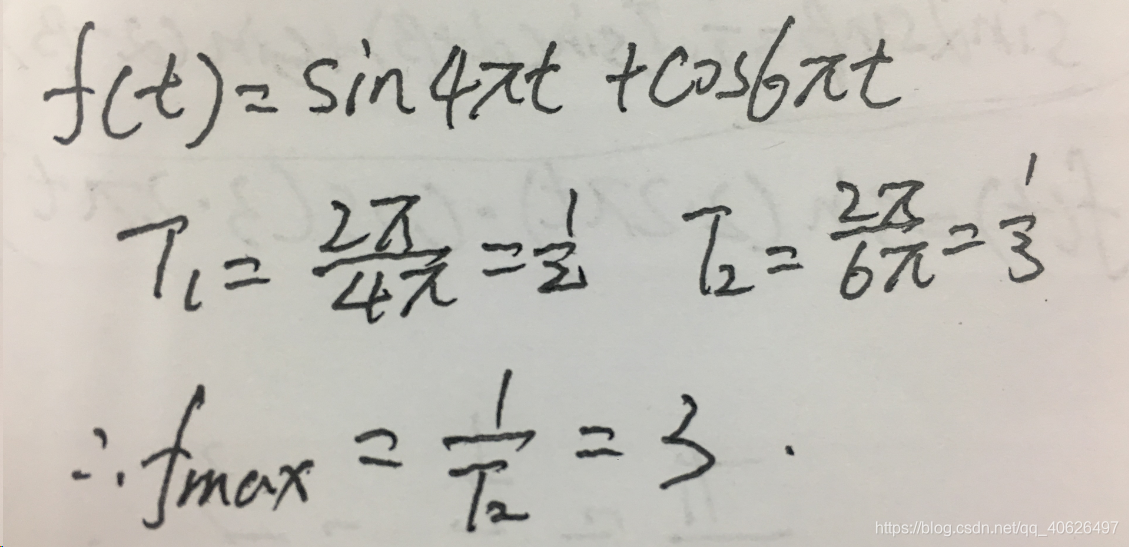 f(t)= sin4πt +cos6πt
T₁ = 2π/4π = 1/2 T₂ = 2π/6π = 1/3
∴ fmax = 1/T₂ = 3.
https://blog.csdn.net/qq_40626497